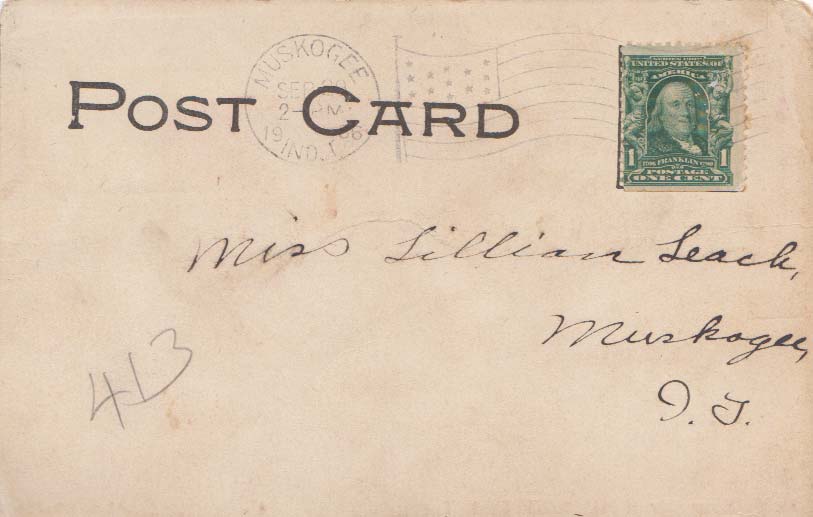 MUSKOGEE
SEP 20
2-PM
1906
IND.T.
POST CARD
SERIES 1902
UNITED STATES OF
AMERICA
1 1
1706 FRANKLIN 1790
POSTAGE
ONE CENT
Miss Lillian Leach,
Muskogee,
I. T.
413